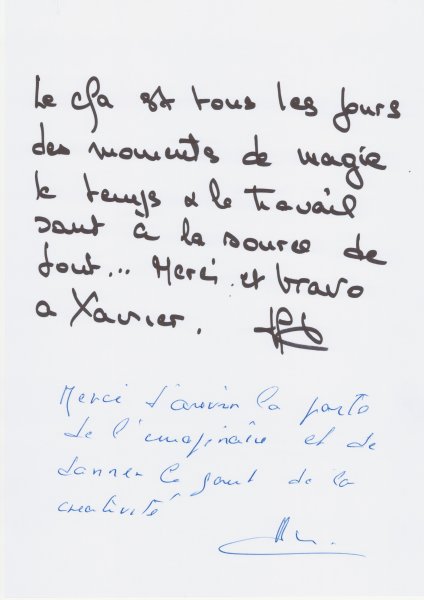 Le cfa est tous les jours
des moments de magie
le temps & le travail
sont à la source de
tout... Merci et bravo
a Xavier.
Merci d'ouvrir la porte
de l'imaginaire et de
donner le gout de la
créativité